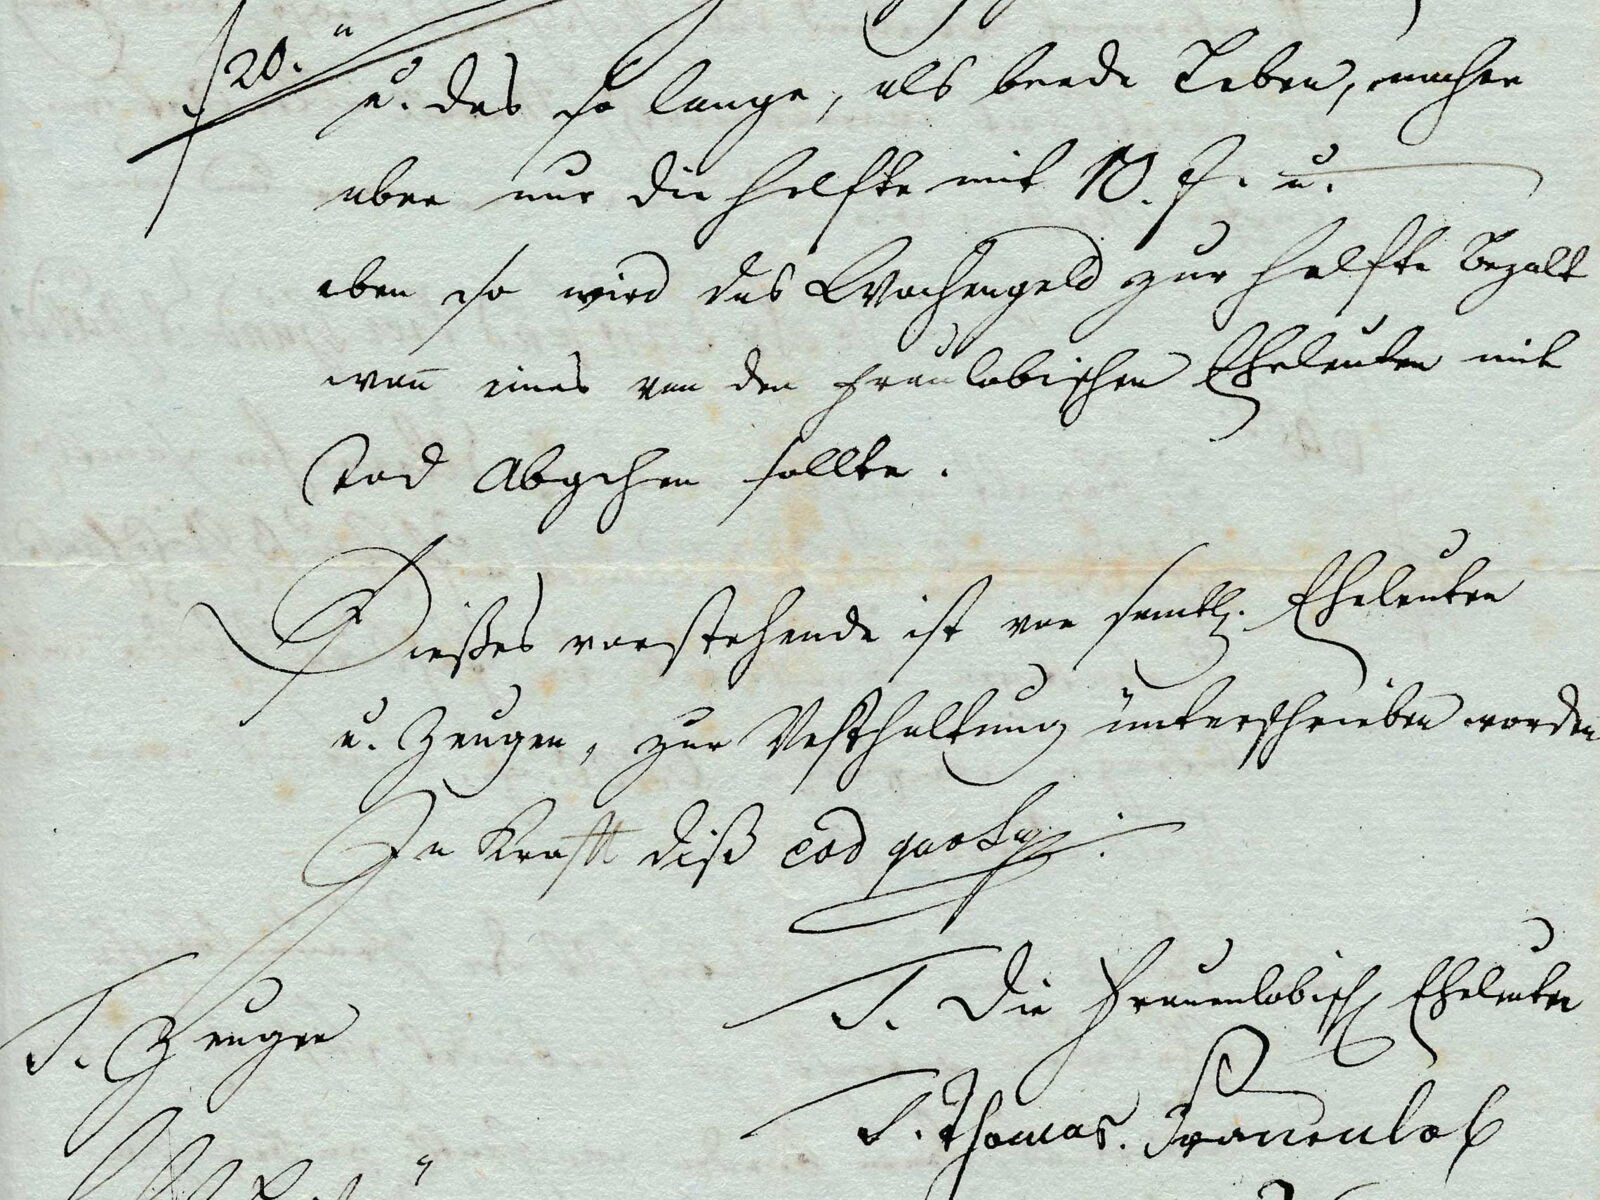 20.
u. das so lange, als beede Leben, nacher
aber nur die helfte mit 10. f. u.
eben so wird das Wochengeld zur helfte bezalt
wan̄ eines von den Fraulobischen Eheleuten mit
Tod Abgehen sollte.
Dießes vorstehende ist von samtl. Eheleuten
u. Zeugen, zur Vesthaltung unterschrieben worden
In Krafft diß eod quo Sup.
T. Die Frauenlobisch Eheleuten
T. Zeugen
T. Thomas. Frauenlob